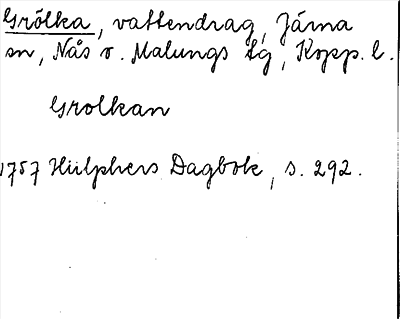 Grölka, vattendrag, Järna
sn, Nås o. Malungs tg, Kopp. l.
Grolkan
1757 Hülphers Dagbok, s. 292.